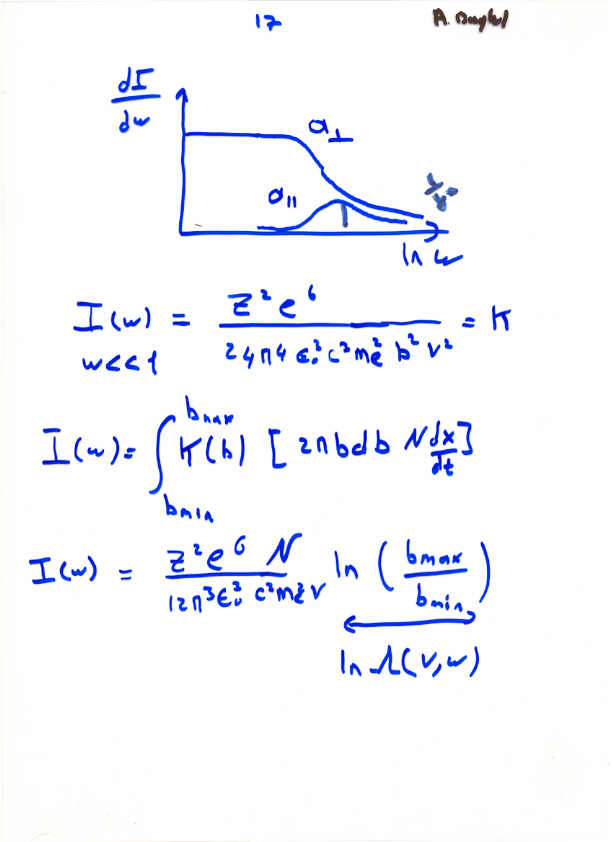 17
dI/dω
a⊥
a∥
ln ω
I(ω) = Z²e⁶ / 24π⁴ε₀³c³mₑ²b²v² = K
ω<<1
I(ω) = ∫ bmin bmax K(b) [2πbdb N dx/dt]
I(ω) = Z²e⁶ N / 12π³ε₀³c³mₑ²v ln (bmax/bmin)
ln Λ(v,ω)